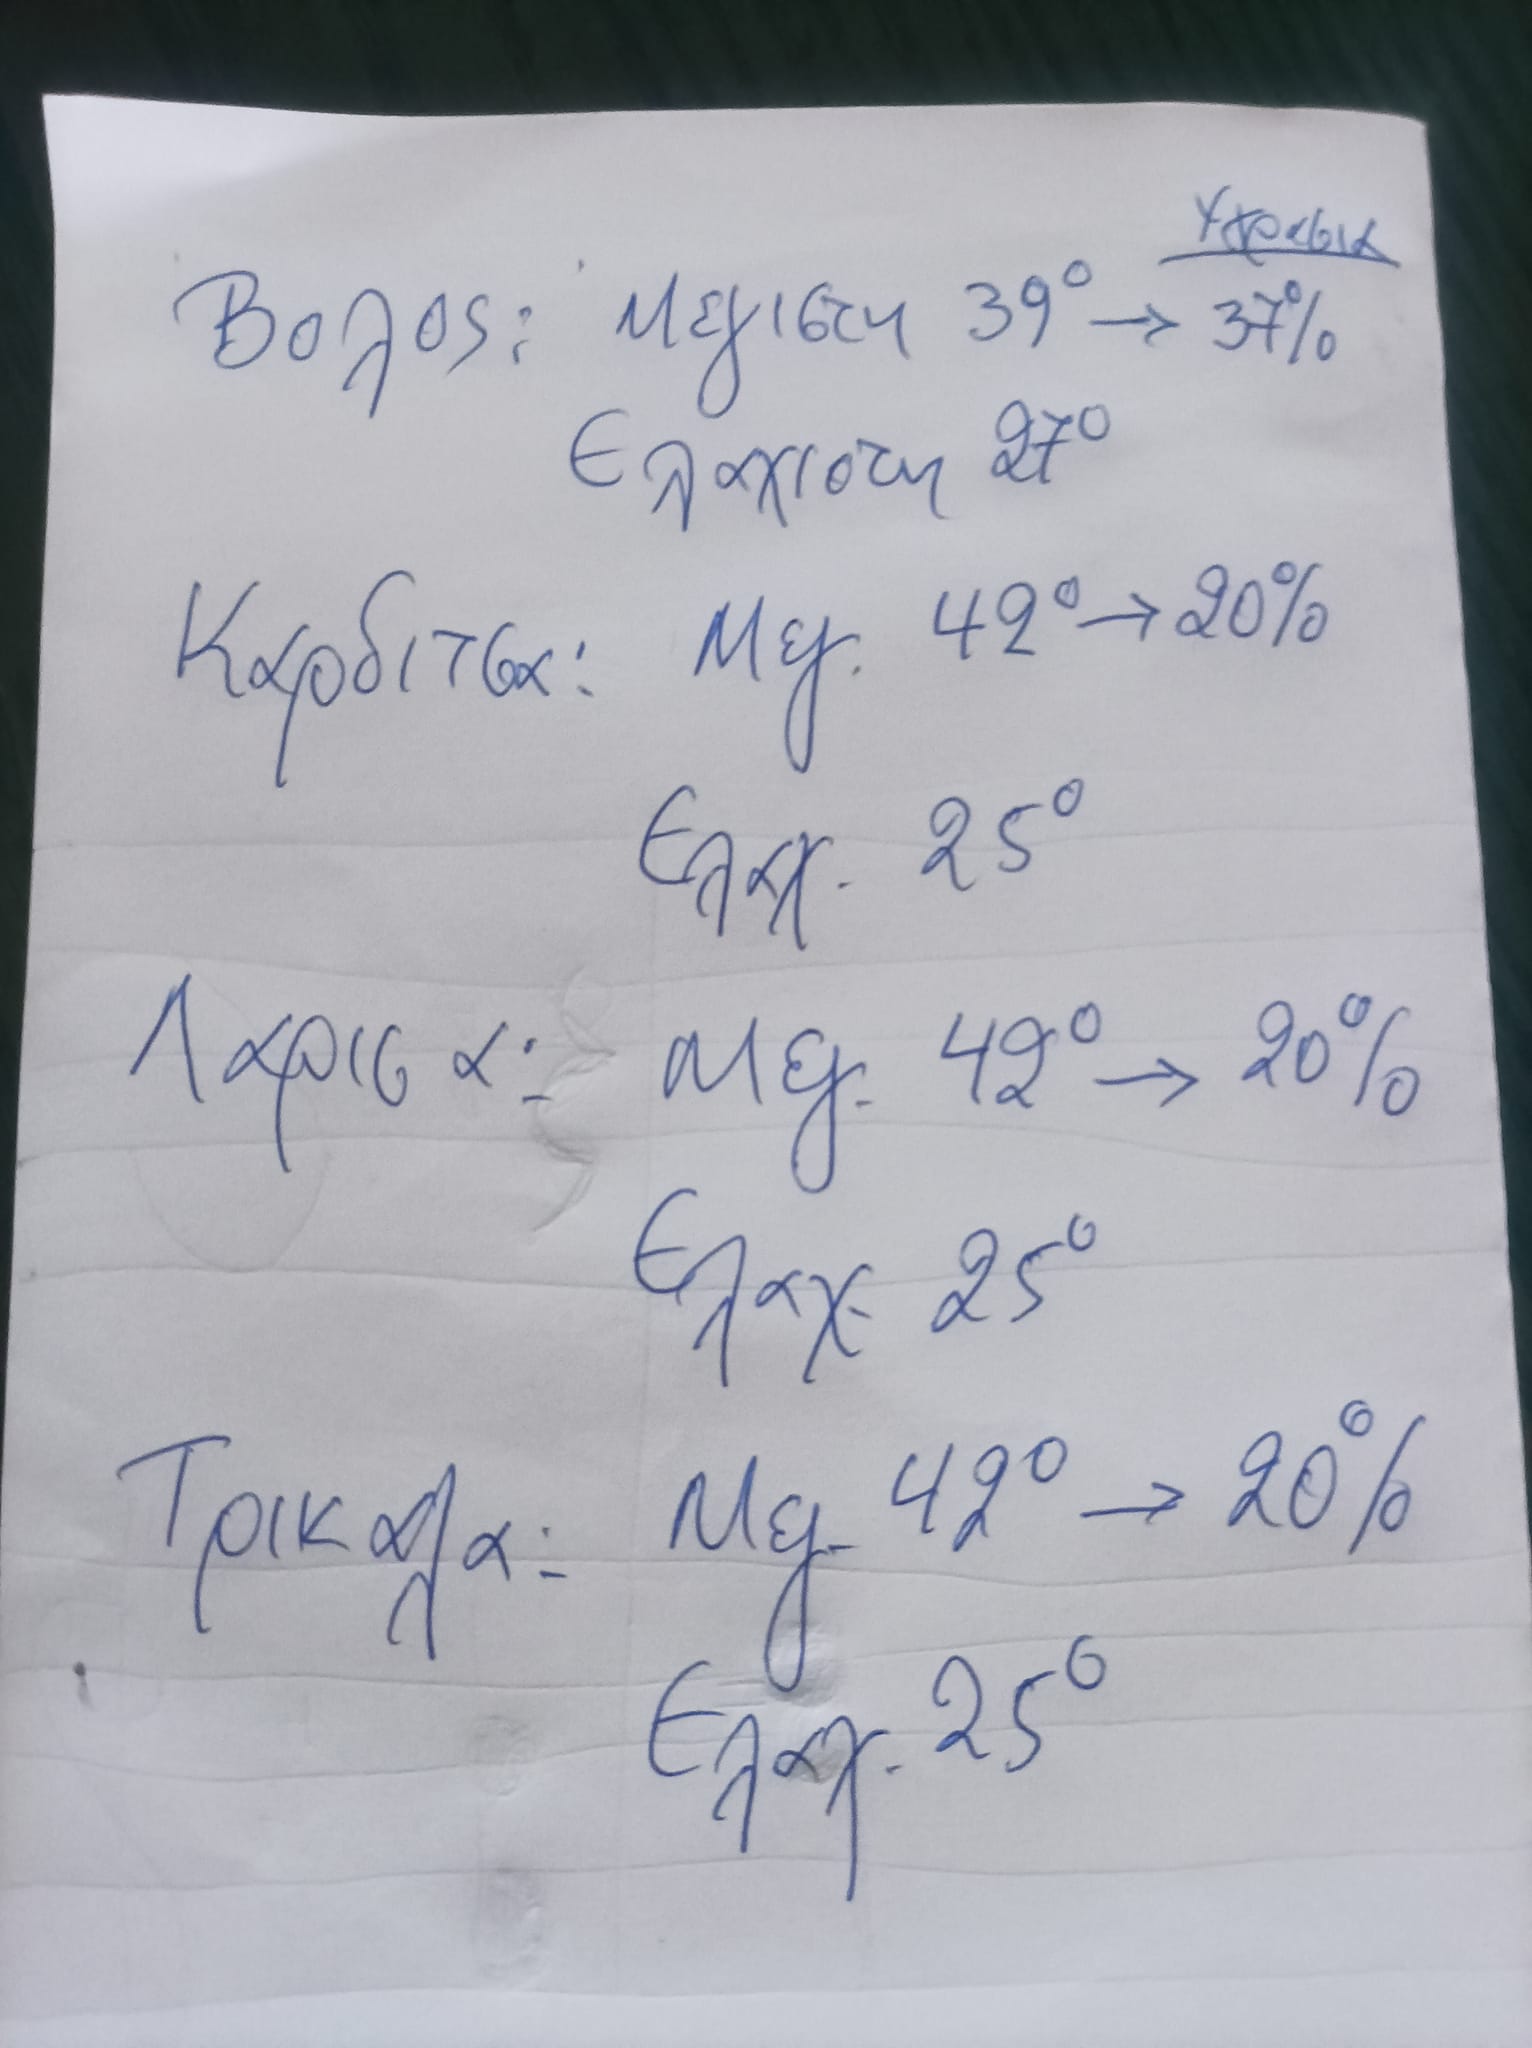 Υγρασια
Βολος: Μεγιστη 39° → 37%
Ελαχιστη 27°
Καρδιτσα: Μεγ. 42° → 20%
Ελαχ. 25°
Λαρισα: Μεγ. 42° → 20%
Ελαχ. 25°
Τρικαλα: Μεγ. 42° → 20%
Ελαχ. 25°